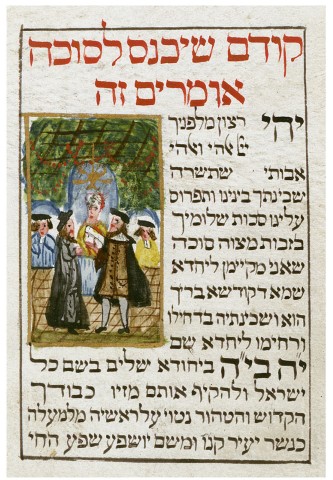 קודם שיכנס לסוכה
אומרים זה
יהי רצון מלפניך
אלהי ואלהי
אבותי שתשרה
שכינתך בינינו ותפרוס
עלינו סכות שלומיך
בזכות מצוה סוכה
שאני מקיימן ליחדא
שמא דקודשא ברך
הוא ושכינתיה בדחילו
ורחימו ליחדא שם
י"ה בי"ה ביחודא שלים בשם כל
ישראל ולהקיף אותם מזיו כבודך
הקדוש והטהור נטוי על ראשיה מלמעלה
כנשר יעיר קנו ומשם יושפע שפע החי